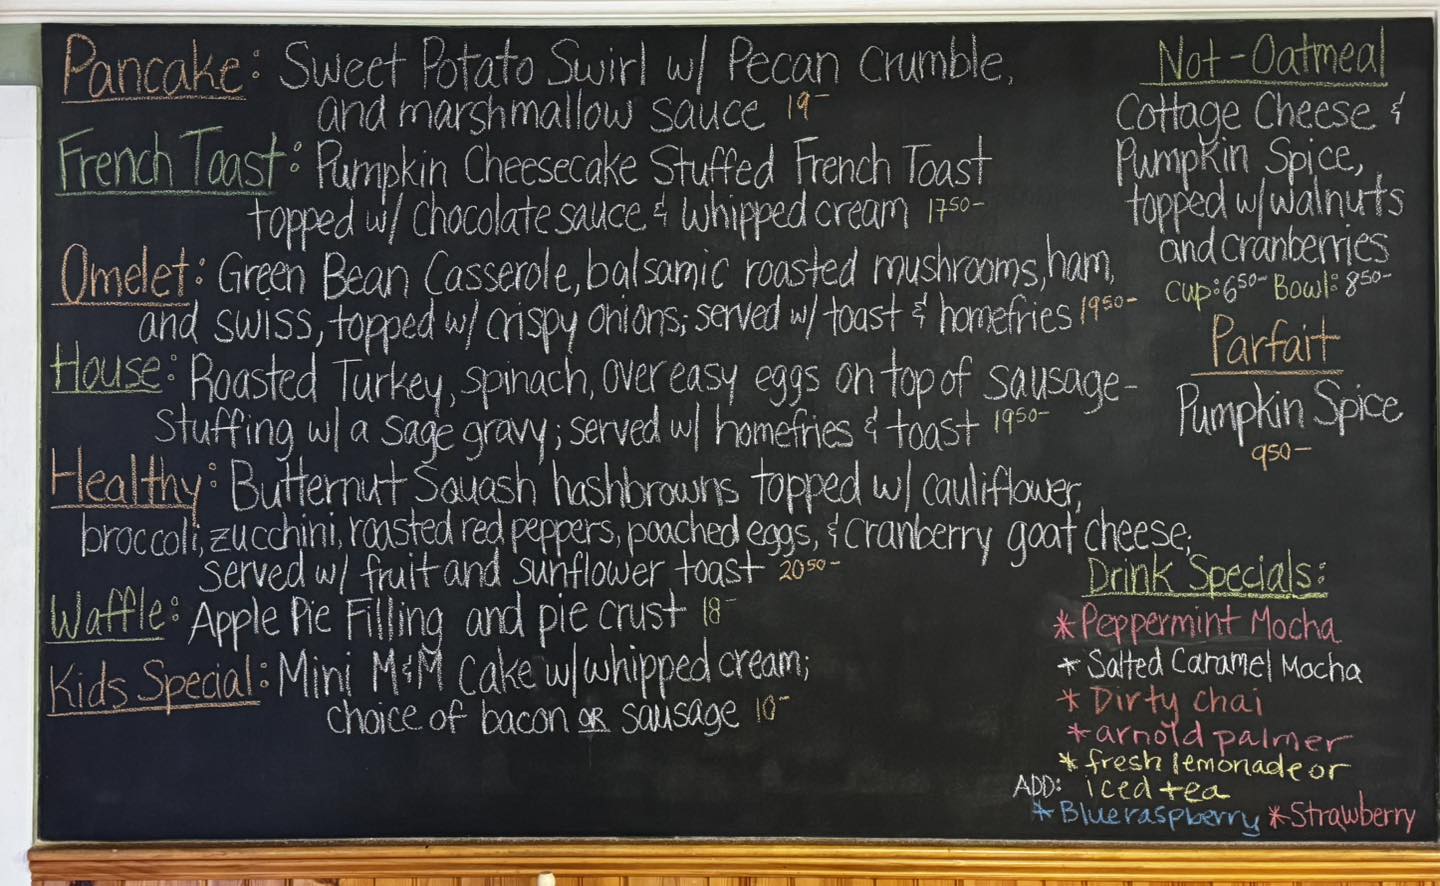 Pancake: Sweet Potato Swirl w/ Pecan Crumble,
and marshmallow sauce 19-
French Toast: Pumpkin Cheesecake Stuffed French Toast
topped w/ chocolate sauce & whipped cream 1750-
Omelet: Green Bean Casserole, balsamic roasted mushrooms, ham,
and swiss, topped w/ crispy onions; served w/ toast & homefries 1950-
House: Roasted Turkey, spinach, over easy eggs on top of sausage-
Stuffing w/ a sage gravy; served w/ homefries & toast 1950-
Healthy: Butternut Squash hashbrowns topped w/ cauliflower,
broccoli, zucchini, roasted red peppers, poached eggs, & cranberry goat cheese;
served w/ fruit and sunflower toast 2050-
Waffle: Apple Pie Filling and pie crust 18-
Kids Special: Mini M&M Cake w/ whipped cream;
choice of bacon OR sausage 10-
Not-Oatmeal
Cottage Cheese &
Pumpkin Spice,
topped w/ walnuts
and cranberries
cup: 650- Bowl: 850-
Parfait
Pumpkin Spice
950-
Drink Specials:
* Peppermint Mocha
* Salted Caramel Mocha
* Dirty chai
* arnold palmer
* fresh lemonade or
iced tea
ADD:
* Blue raspberry * Strawberry